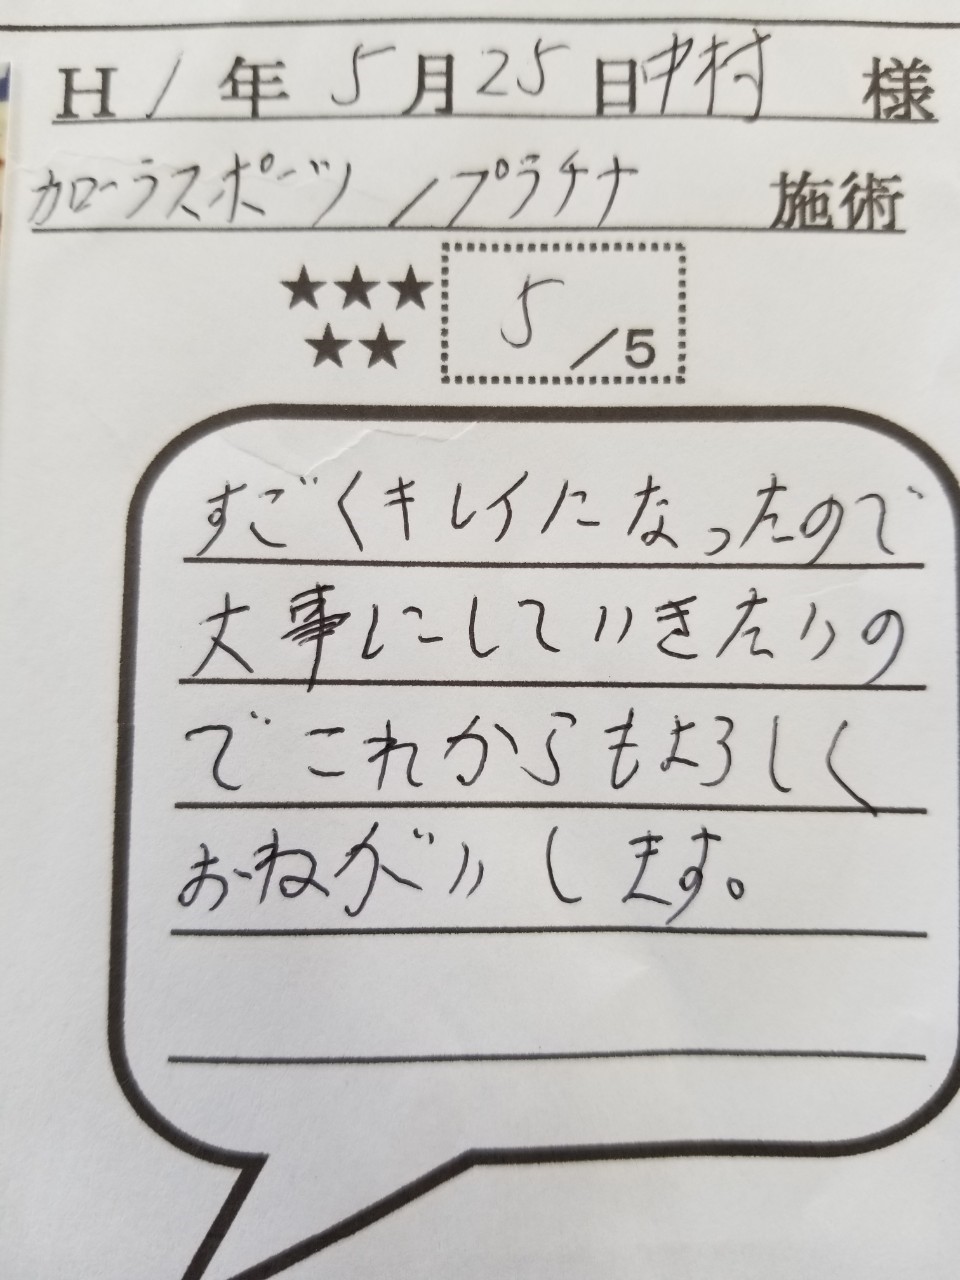 H1年5月25日中村様
カローラスポーツ/プラチナ 施術
★★★★★ 5/5
すごくキレイになったので
大事にしていきたいの
でこれからもよろしく
おねがいします。